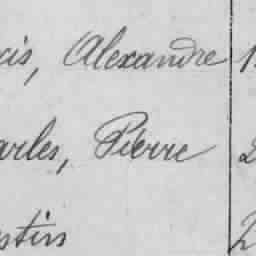 cis, Alexandre 1
arles, Pierre 2
stin 2